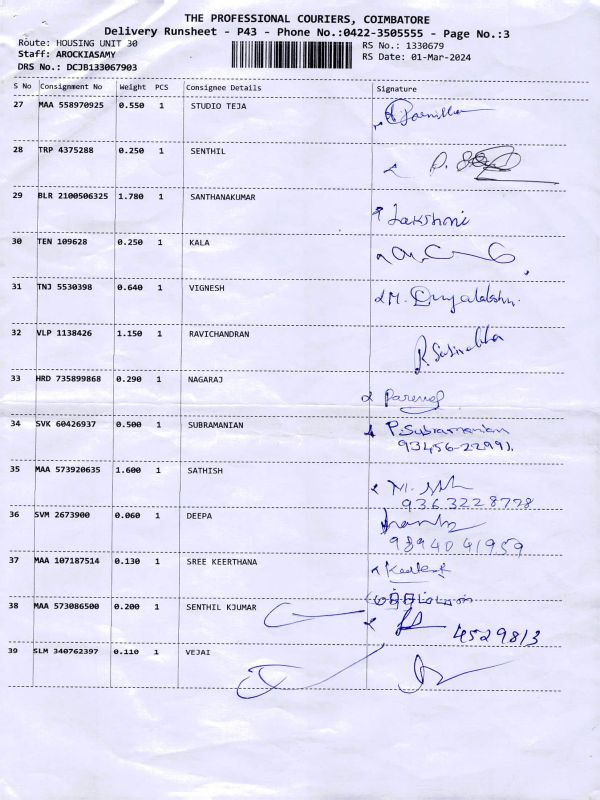 THE PROFESSIONAL COURIERS, COIMBATORE
Delivery Runsheet - P43 - Phone No.:0422-3505555 - Page No.:3
Route: HOUSING UNIT 30 RS No.: 1330679
Staff: AROCKIASAMY RS Date: 01-Mar-2024
DRS No.: DCJB133067903
S No Consignment No Weight PCS Consignee Details Signature
27 MAA 558970925 0.550 1 STUDIO TEJA
28 TRP 4375288 0.250 1 SENTHIL
29 BLR 2100506325 1.780 1 SANTHANAKUMAR
Lakshmi
30 TEN 109628 0.250 1 KALA
31 TNJ 5530398 0.640 1 VIGNESH
32 VLP 1138426 1.150 1 RAVICHANDRAN
33 HRD 735899868 0.290 1 NAGARAJ
34 SVK 60426937 0.500 1 SUBRAMANIAN P. Subramanian
93456-22991.
35 MAA 573920635 1.600 1 SATHISH
9363228778
36 SVM 2673900 0.060 1 DEEPA
9894041959
37 MAA 107187514 0.130 1 SREE KEERTHANA
38 MAA 573086500 0.200 1 SENTHIL KJUMAR
4529813
39 SLM 340762397 0.110 1 VEJAI